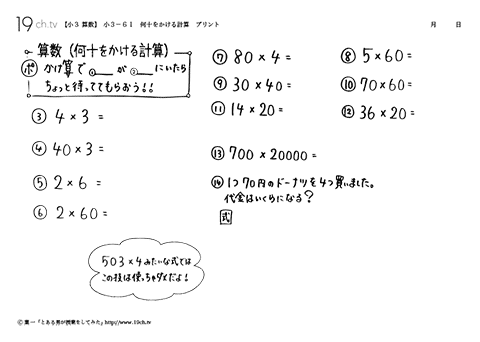 19ch.tv 【小3 算数】 小3-61 何十をかける計算 プリント 月 日
算数(何十をかける計算)
ポ かけ算で①___が②___にいたら
ちょっと待っててもらおう!!
③ 4×3=
④ 40×3=
⑤ 2×6=
⑥ 2×60=
⑦ 80×4=
⑧ 5×60=
⑨ 30×40=
⑩ 70×60=
⑪ 14×20=
⑫ 36×20=
⑬ 700×20000=
⑭ 1つ70円のドーナツを4つ買いました。
代金はいくらになる?
式
503×4みたいな式では
この技は使っちゃダメだよ!
© 葉一「とある男が授業をしてみた」http://www.19ch.tv